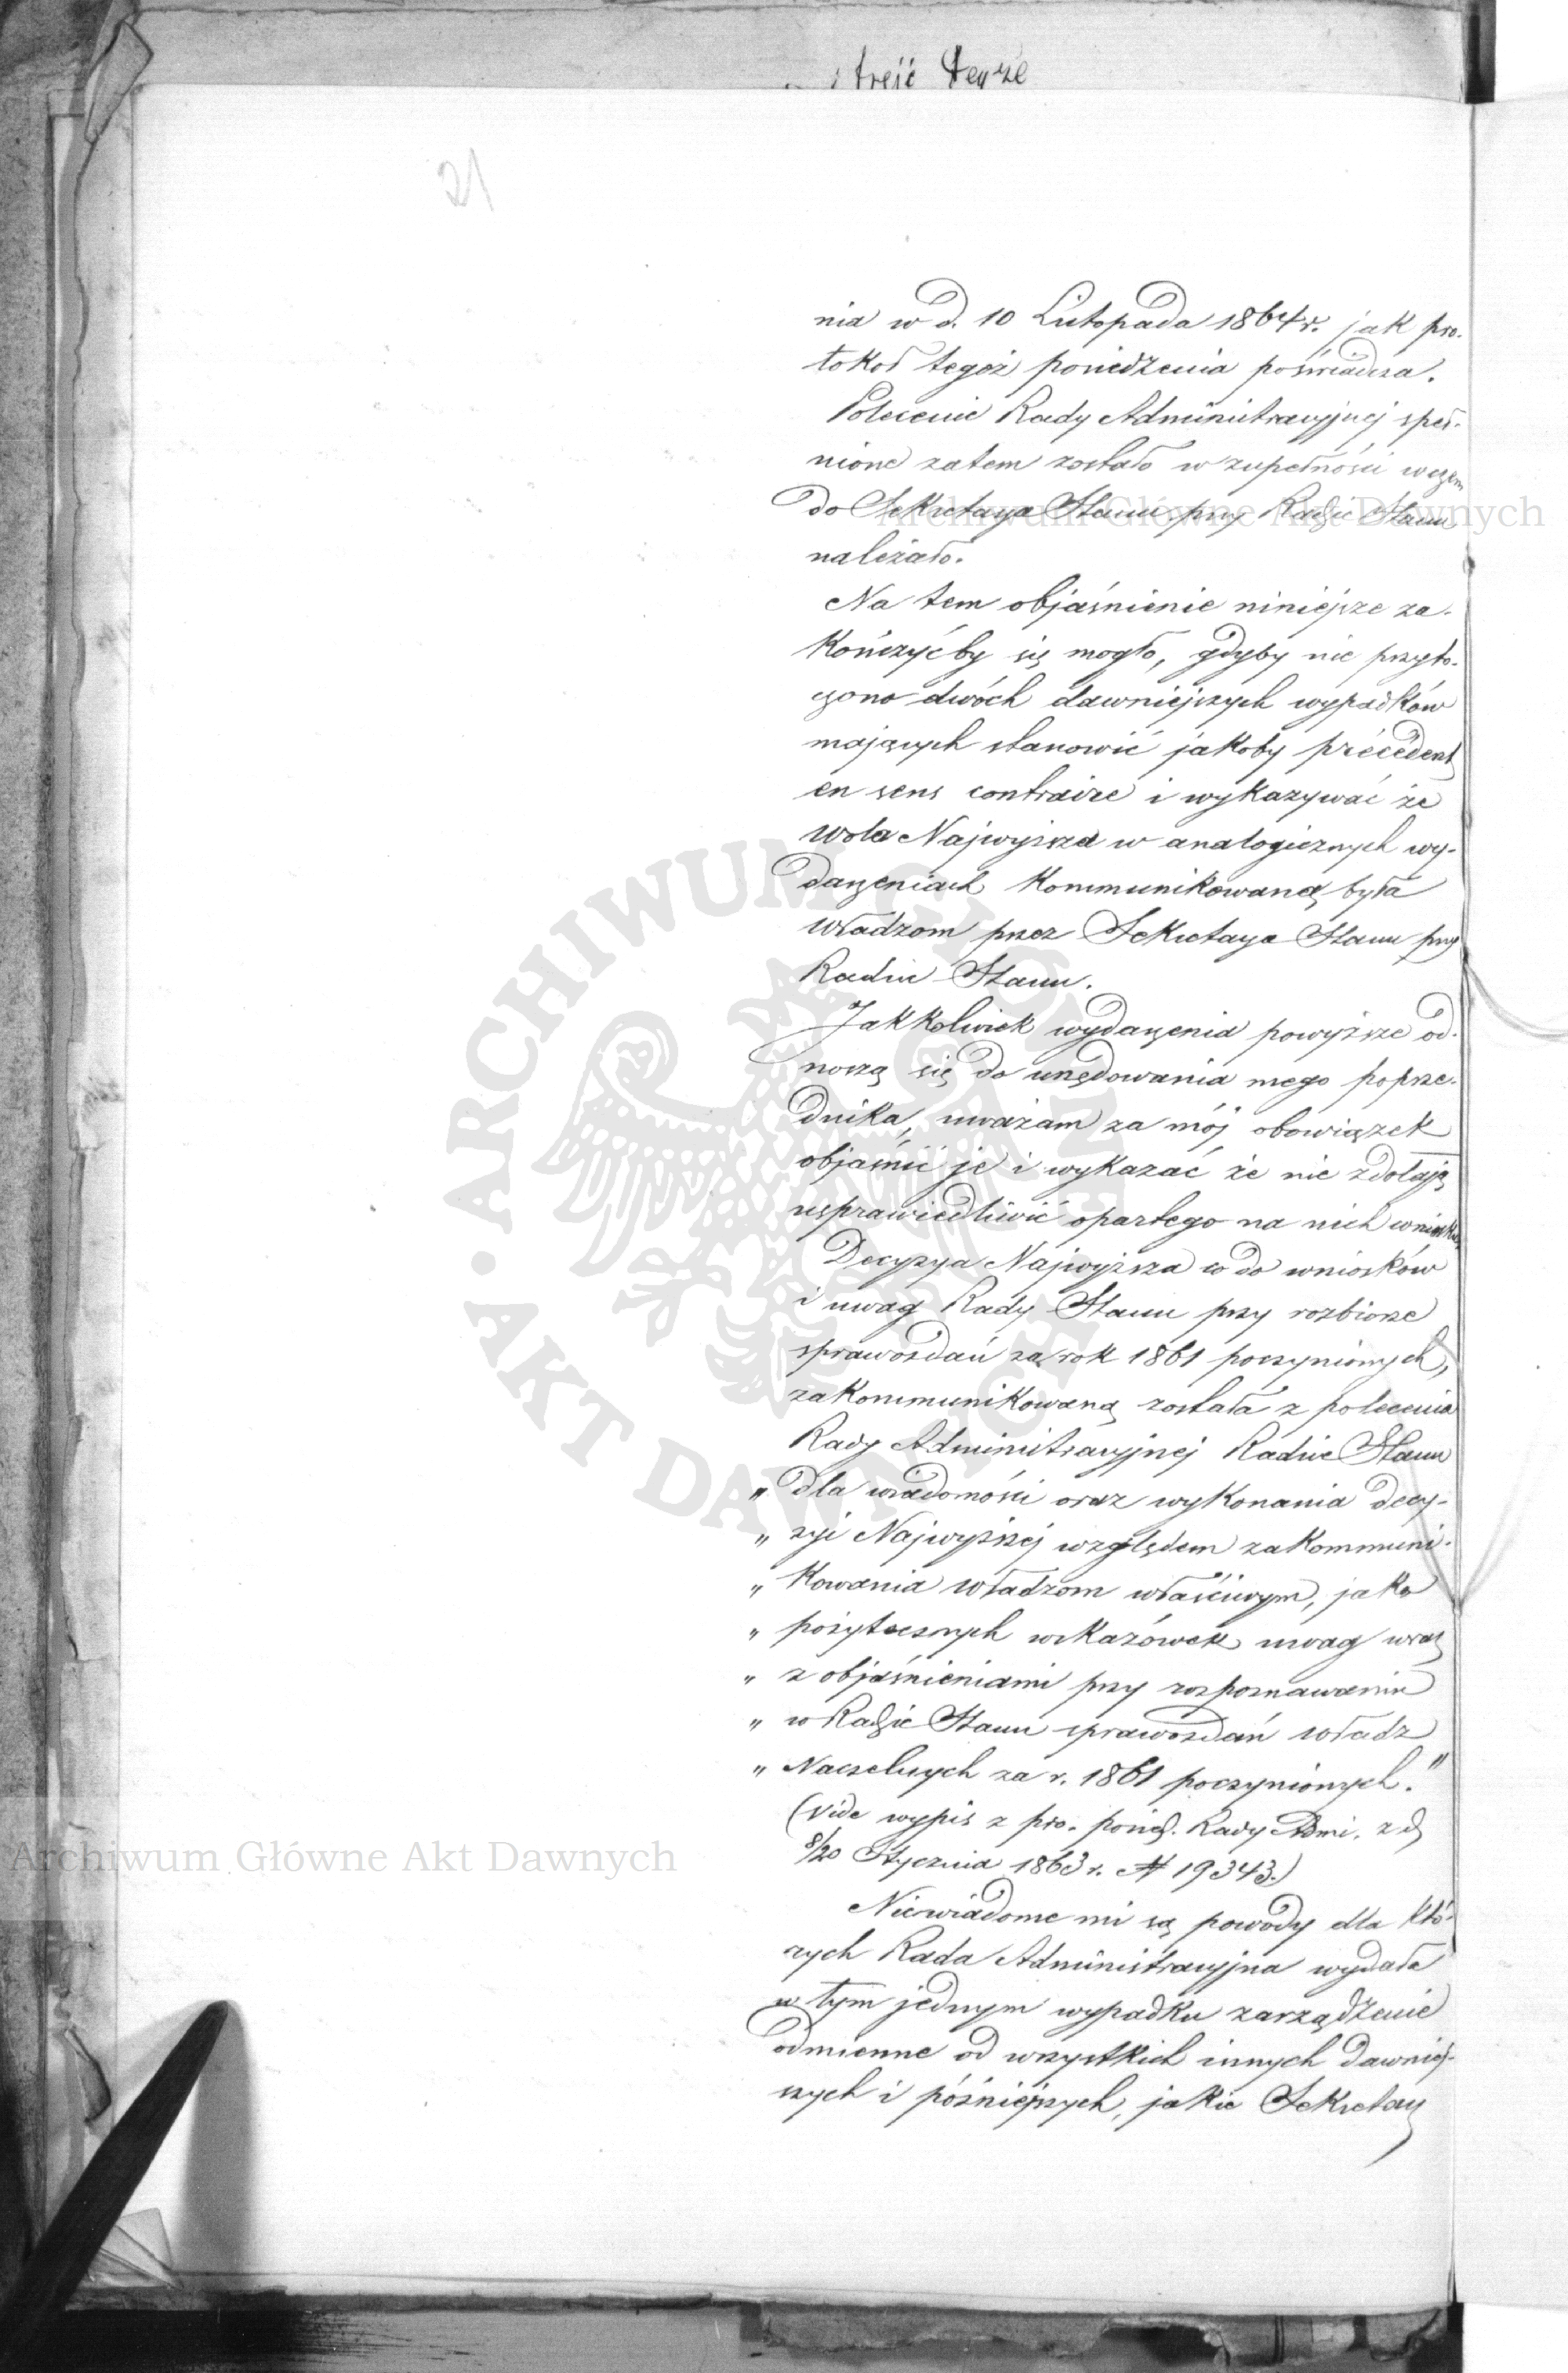 treść Teyże
21
nia w d. 10 Listopada 1864 r. jak pro-
tokoł tegoż posiedzenia poświadcza.
Polecenie Rady Administracyjnej speł-
nione zatem zostało w zupełności w czem
do Sekretarza Stanu przy Radzie Stanu
należało.
Na tem objaśnienie niniejsze za-
kończyćby się mogło, gdyby nie przyto-
czono dwóch dawniejszych wypadków
mających stanowić jakoby précédent
en sens contraire i wykazywać że
Wola Najwyższa w analogicznych wy-
darzeniach kommunikowaną była
Władzom przez Sekretarza Stanu przy
Radzie Stanu.
Jakkolwiek wydarzenia powyższe od-
noszą się do urzędowania mego poprze-
dnika, uważam za mój obowiązek
objaśnić je i wykazać że nie zdołają
usprawiedliwić opartego na nich wniosku
Decyzya Najwyższa co do wniosków
i uwag Rady Stanu przy rozbiorze
sprawozdań za rok 1861 poczynionych,
zakommunikowaną została z polecenia
Rady Administracyjnej Radzie Stanu
„ dla wiadomości oraz wykonania decy-
„ zyi Najwyższej względem zakommuni-
„ kowania Władzom właściwym, jako
„ pożytecznych wskazówek uwag wraz
„ z objaśnieniami przy rozpoznawaniu
„ w Radzie Stanu sprawozdań Władz
„ Naczelnych za r. 1861 poczynionych."
(vide wypis z pro. posied. Rady Admi. z d.
8/20 Stycznia 1863 r. N 19343.)
Niewiadome mi są powody dla któ-
rych Rada Administracyjna wydała
w tym jednym wypadku zarządzenie
odmienne od wszystkich innych dawniej-
szych i późniejszych, jakie Sekretarz
Archiwum Główne Akt Dawnych
ARCHIWUM GŁÓWNE AKT DAWNYCH
Archiwum Główne Akt Dawnych